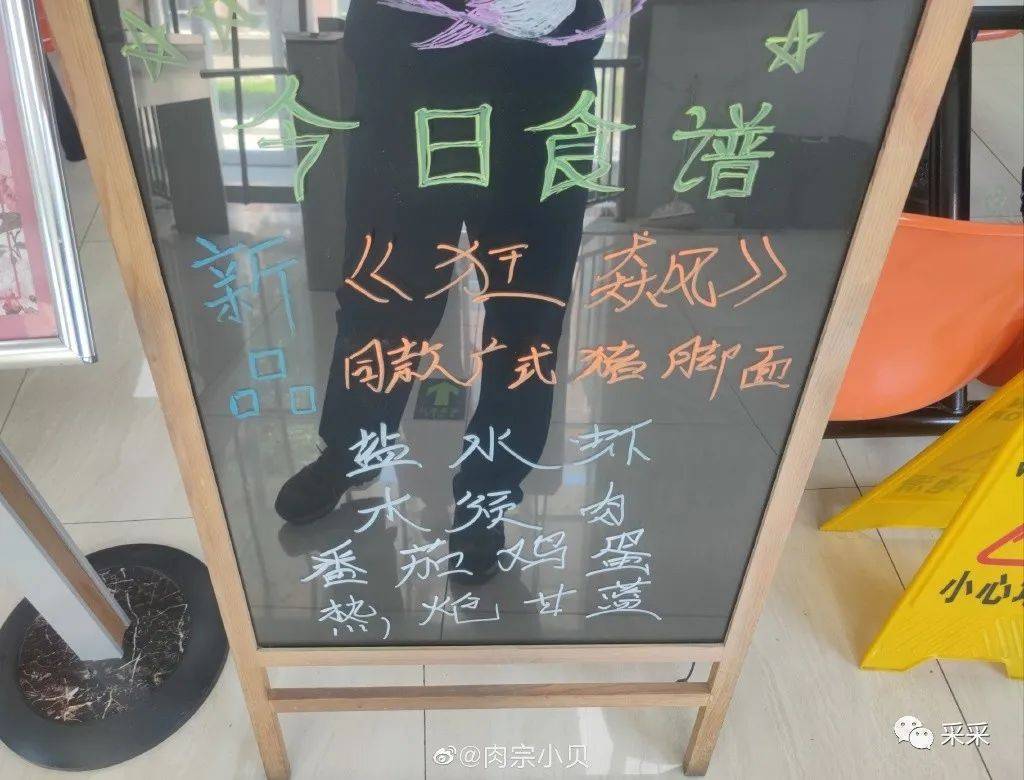 今日食谱
新品
《狂飙》
同款广式猪脚面
盐水虾
木须肉
番茄鸡蛋
热炝甘蓝
小心
@肉宗小贝
采采